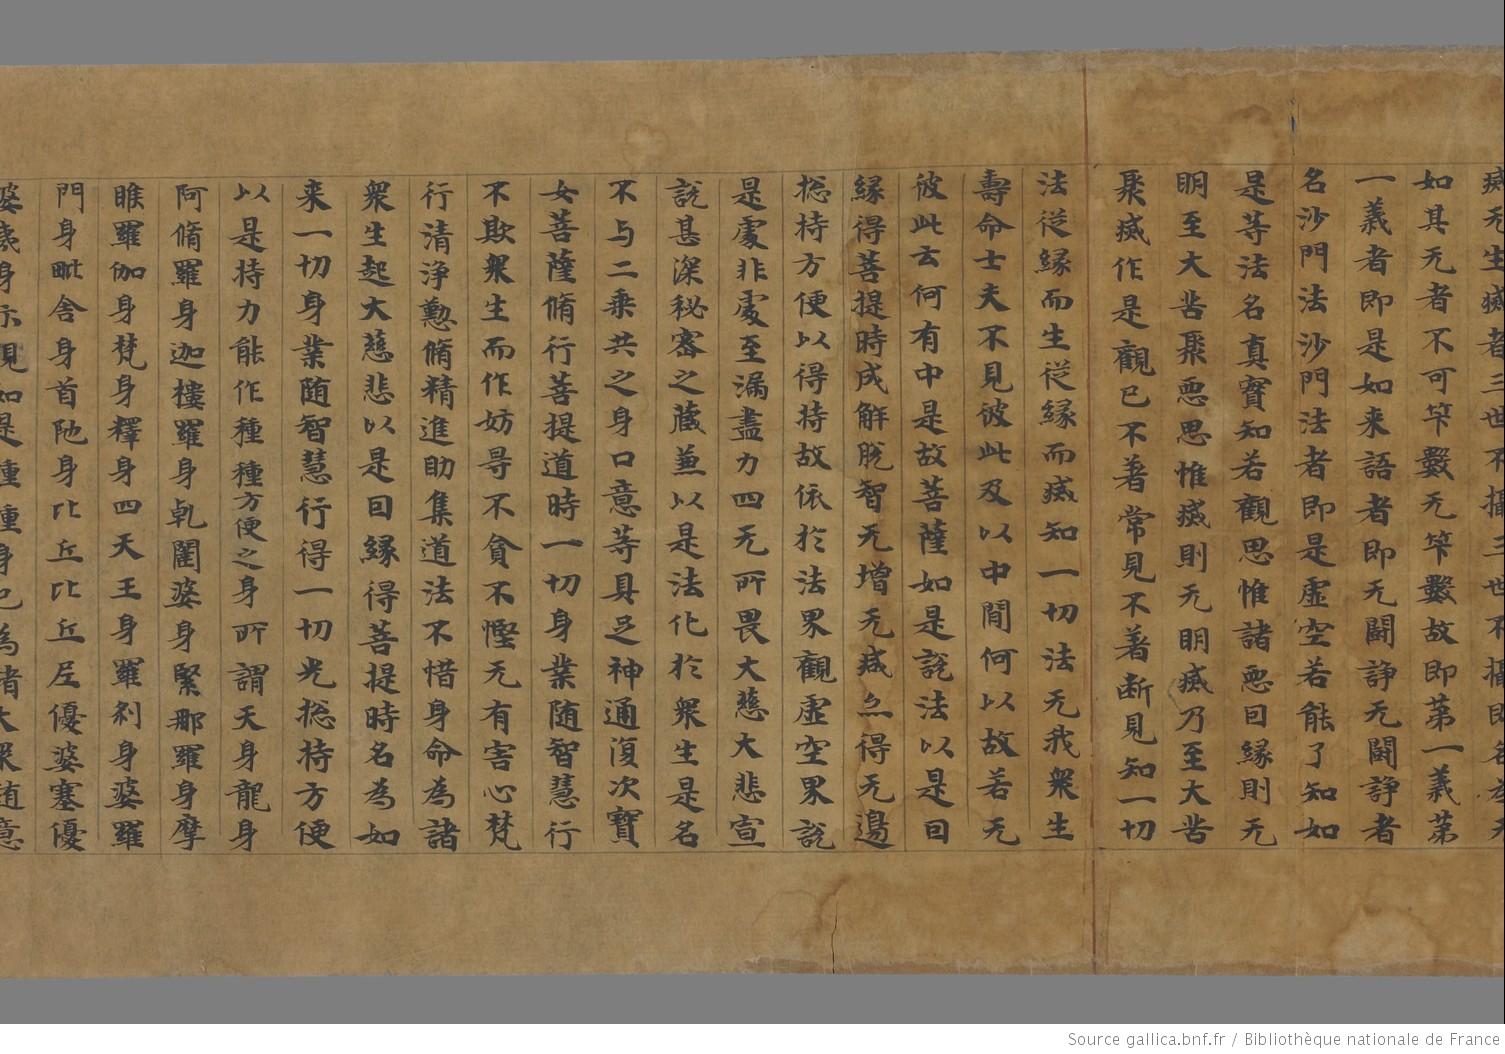 滅无生滅者三世不攝三世不攝即名為无
如其无者不可筭數无筭數故即第一義第
一義者即是如来語者即无闘諍无闘諍者
名沙門法沙門法者即是虛空若能了知如
是等法名真實知若觀思惟諸惡曰緣則无
明至大苦聚惡思惟滅則无明滅乃至大苦
聚滅作是觀已不著常見不著断見知一切
法從緣而生從緣而滅知一切法无我衆生
壽命士夫不見彼此及以中間何以故若无
彼此云何有中是故菩薩如是說法以是曰
緣得菩提時成解脫智无增无滅亦得无邊
揔持方便以得持故依於法界觀虛空界說
是處非處至漏盡力四无所畏大慈大悲宣
說甚深秘密之藏兼以是法化於衆生是名
不与二乘共之身口意等具足神通復次寶
女菩薩脩行菩提道時一切身業随智慧行
不欺衆生而作妨㝵不貪不慳无有害心梵
行清淨懃脩精進助集道法不惜身命為諸
衆生起大慈悲以是曰緣得菩提時名為如
来一切身業随智慧行得一切光揔持方便
以是持力能作種種方便之身所謂天身龍身
阿脩羅身迦樓羅身乹闥婆身緊那羅身摩
睺羅伽身梵身釋身四天王身羅刹身婆羅
門身毗舍身首陁身比丘比丘尼優婆塞優
婆夷身示現如是種種身已為諸大衆随意
Source gallica.bnf.fr / Bibliothèque nationale de France